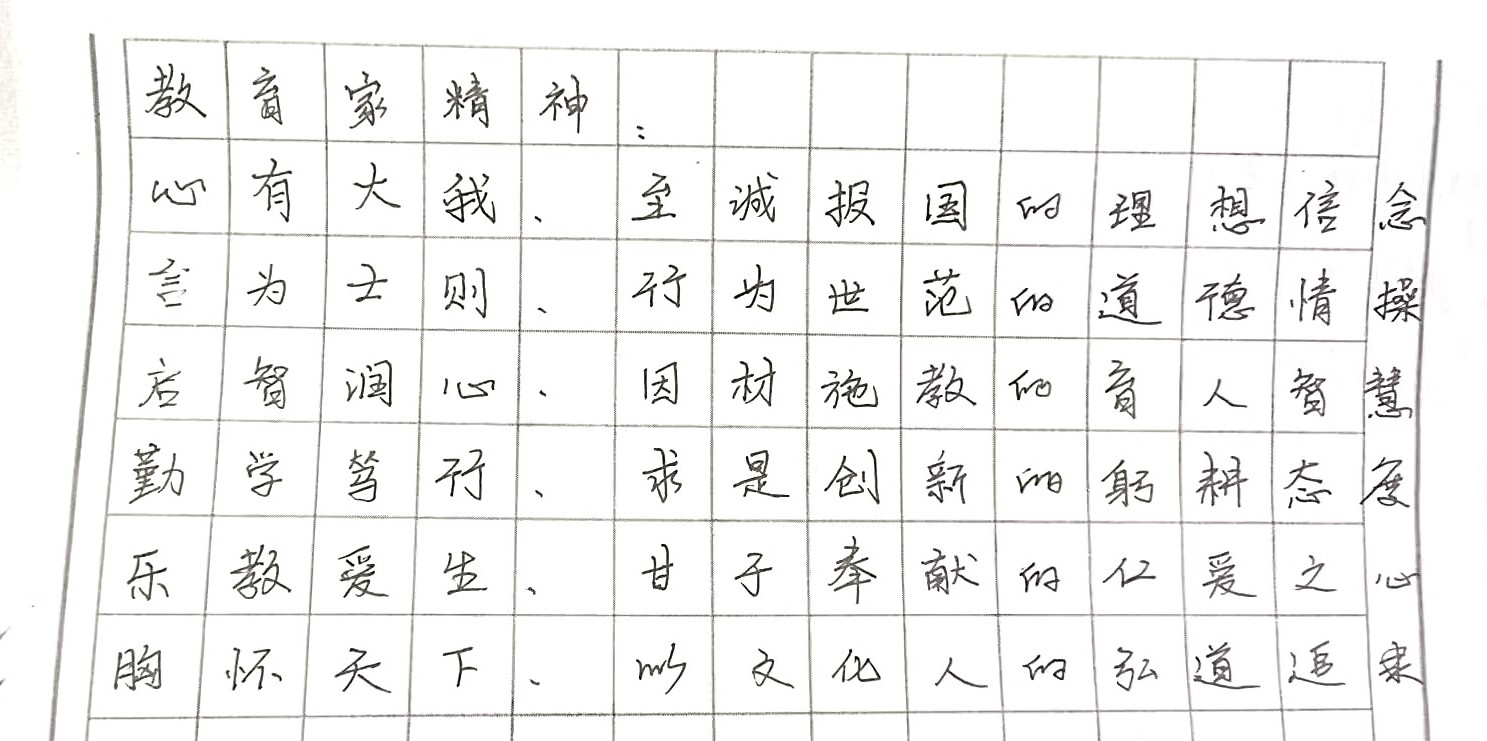 教育家精神：
心有大我、至诚报国的理想信念
言为士则、行为世范的道德情操
启智润心、因材施教的育人智慧
勤学笃行、求是创新的躬耕态度
乐教爱生、甘于奉献的仁爱之心
胸怀天下、以文化人的弘道追求